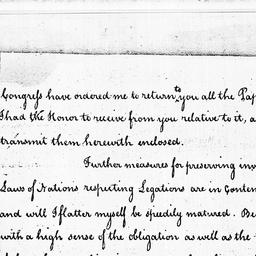 Congreſs have ordered me to return to you all the Pap
I had the Honor to receive from you relative to it, a
transmit them herewith enclosed.
Further measures for preserving inv
Laws of Nations respecting Legations are in Contem
and will I flatter myself be speedily matured. Be
with a high sense of the obligation as well as the